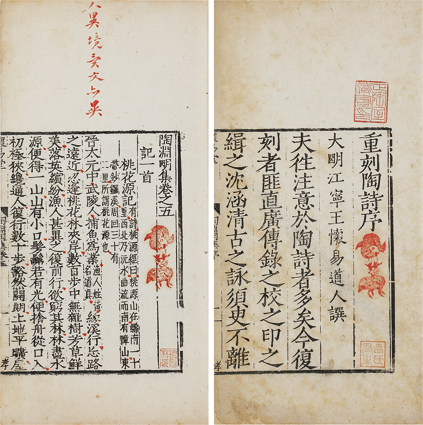 重刻陶詩序
大明江寧王懷易道人譔
夫往注意於陶詩者多矣今復
刻者匪直廣傳錄之校之印之
緝之沈涵清古之詠須吏不離
陶淵明集卷之五
記一首
桃花源記
晉太元中武陵人捕魚為業漁人姓黃名道真緣溪行忘路
之遠近忽逢桃花林夾岸數百步中無雜樹芳草鮮
美落英繽紛漁人甚異之復前行欲窮其林林盡水
源便得一山山有小口髣髴若有光便捨舟從口入
初極狹纔通人復行數十步豁然開朗土地平曠屋